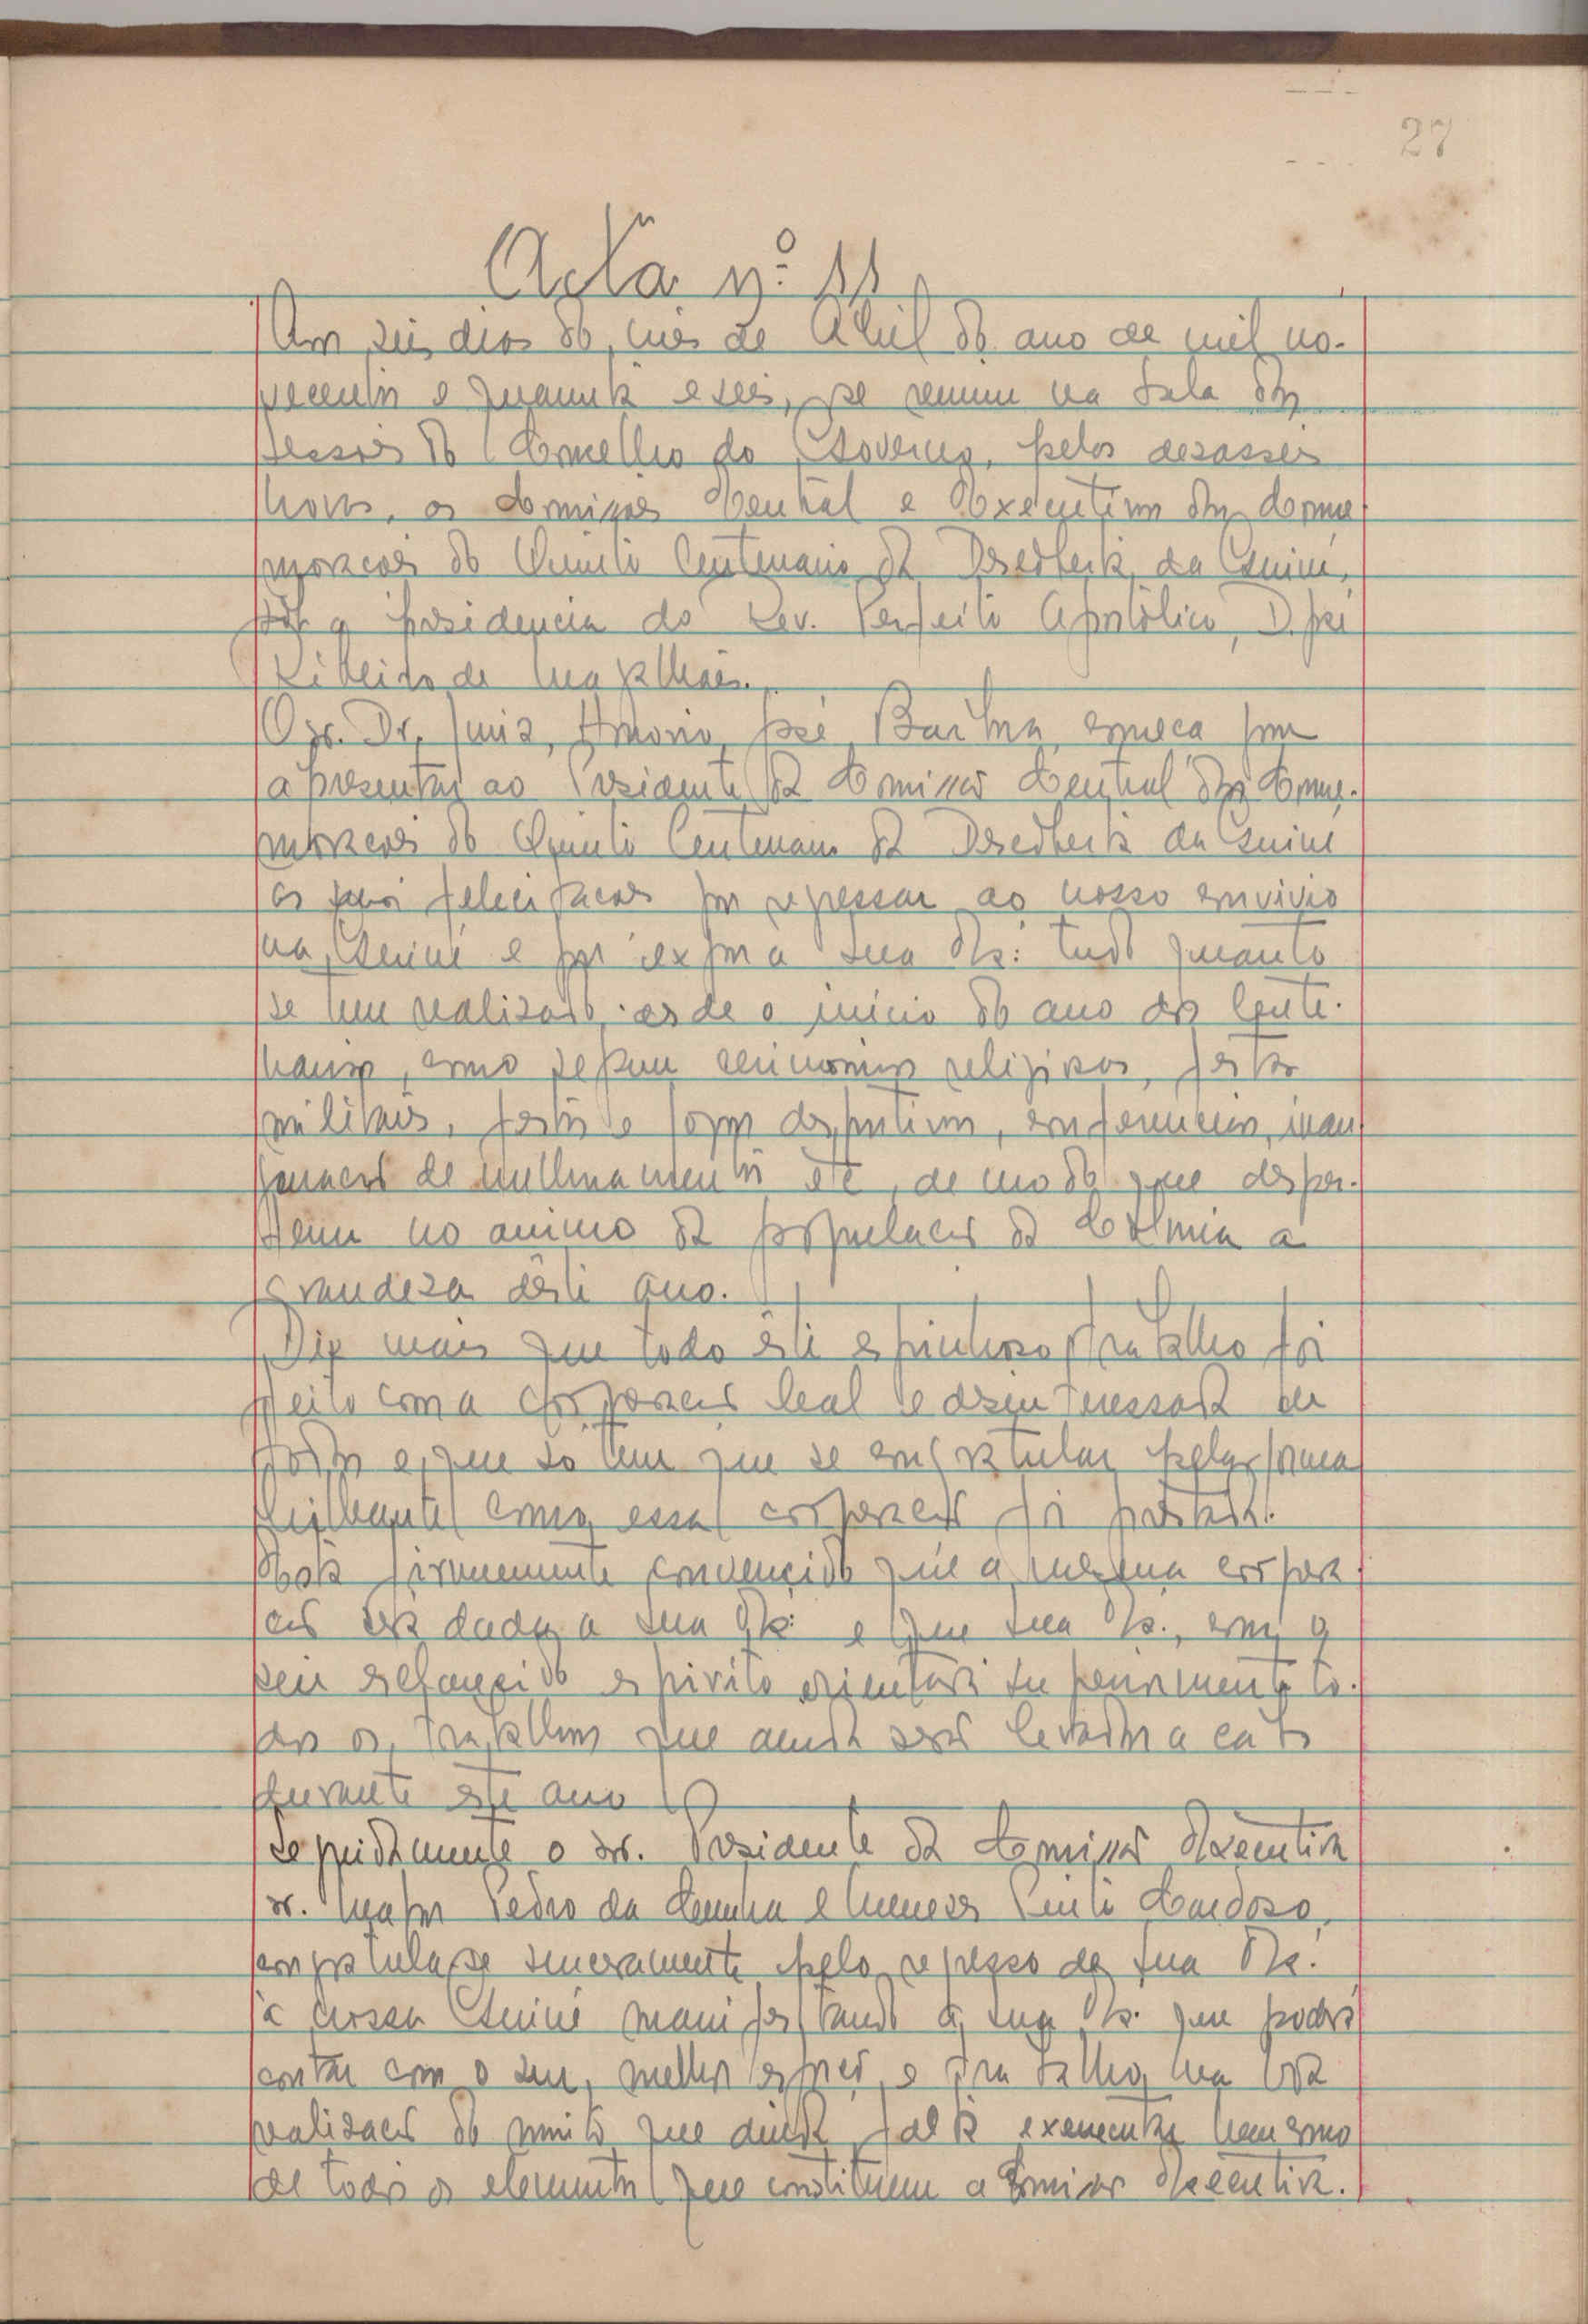 27
Acta nº 11
Aos seis dias do mês de Abril do ano de mil no-
vecentos e quarenta e seis, se reuniu na sala das
sessões do Conselho do Governo, pelas dezasseis
horas, as Comissões Central e Executiva das Come-
morações do Quinto Centenario da Descoberta da Guiné,
sob a presidencia do Rev. Perfeito Apostólico, D. José
Ribeiro de Magalhães.
O sr. Dr. Juiz, Antonio José Barbosa começa por
apresentar ao Presidente da Comissão Central das Come-
morações do Quinto Centenario da Descoberta da Guiné
as suas felicitações por regressar ao nosso convivio
na Guiné e por expor a Sua Exª: tudo quanto
se tem realizado desde o inicio do ano dos Cente-
narios, como sejam cerimonias religiosas, festas
militares, festas e jogos desportivos, conferencias, inau-
gurações de melhoramentos etc, de modo que desper-
tem no animo da população da Colonia a
grandeza dêste ano.
Diz mais que todo êste espinhoso trabalho foi
feito com a cooperação leal e desinteressada de
todos e que só tem que se congratular pela forma
brilhante como essa cooperação foi prestada.
Está firmemente convencido que a mesma coopera-
ção será dada a Sua Exª: e que Sua Exª., com o
seu esclarecido espirito orientará superiormente to-
dos os trabalhos que ainda serão levados a cabo
durante este ano
Seguidamente o sr. Presidente da Comissão Executiva
sr. Major Pedro da Cunha e Menezes Pinto Cardoso,
congratula-se sinceramente pelo regresso de Sua Exª:
à nossa Guiné manifestando a Sua Exª. que poderá
contar com o seu melhor esforço e trabalho na boa
realização do muito que ainda falta bem como
de todos os elementos que constituem a Comissão Executiva.